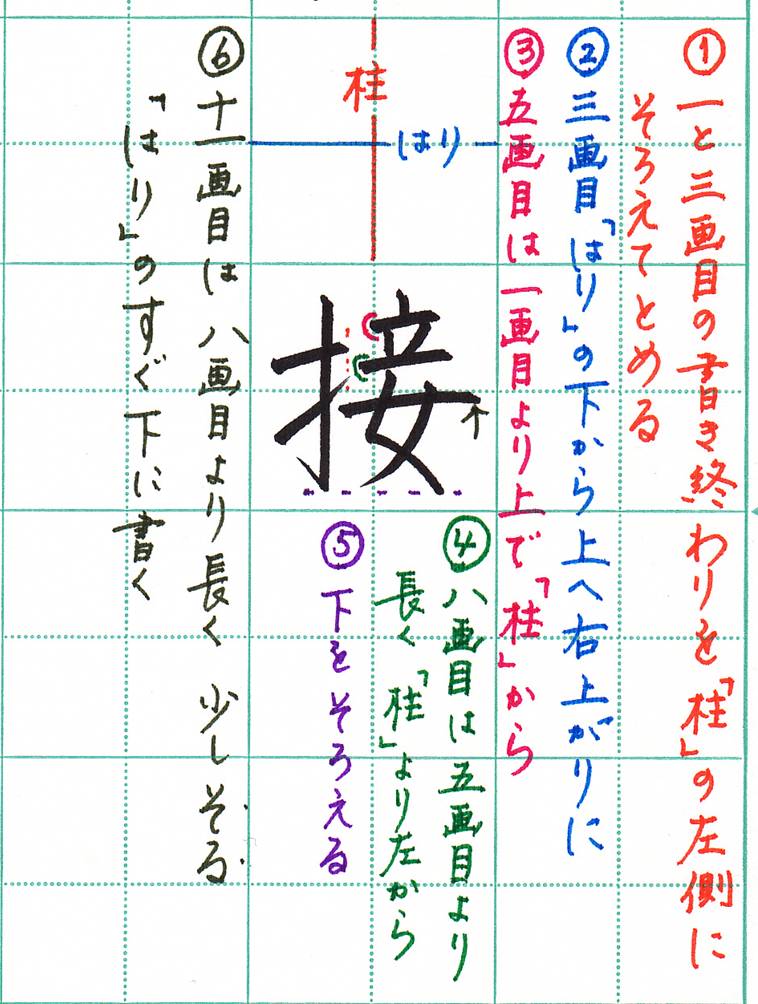 ①一と三画目の書き終わりを「柱」の左側に
そろえてとめる
②三画目「はり」の下から上へ右上がりに
③五画目は一画目より上で「柱」から
柱
はり
接
④八画目は五画目より
長く「柱」より左から
⑤下をそろえる
⑥十一画目は八画目より長く 少しそる
「はり」のすぐ下に書く